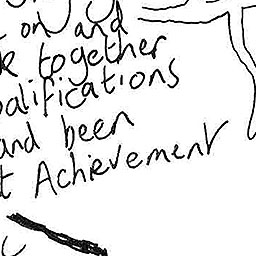 on and
together
alifications
and been
t Achievement